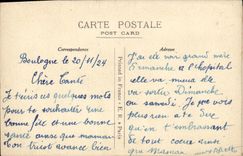 CARTE POSTALE
POST CARD
Correspondance
Adresse
Boulogne le 20/11/24
Chère Tante
Je t'écris ces quelques mots
pour te souhaiter une
bonne fête et une bonne
santé ainsi que maman
Ton tricot avance bien
J'ai été voir grand mère
dimanche à l'hôpital
elle va mieux elle
va sortir Dimanche
ou samedi. Je ne vois
plus rien à te dire
qu'en t'embrassant
de tout coeur ainsi
que Maman
Printed in France
Paris